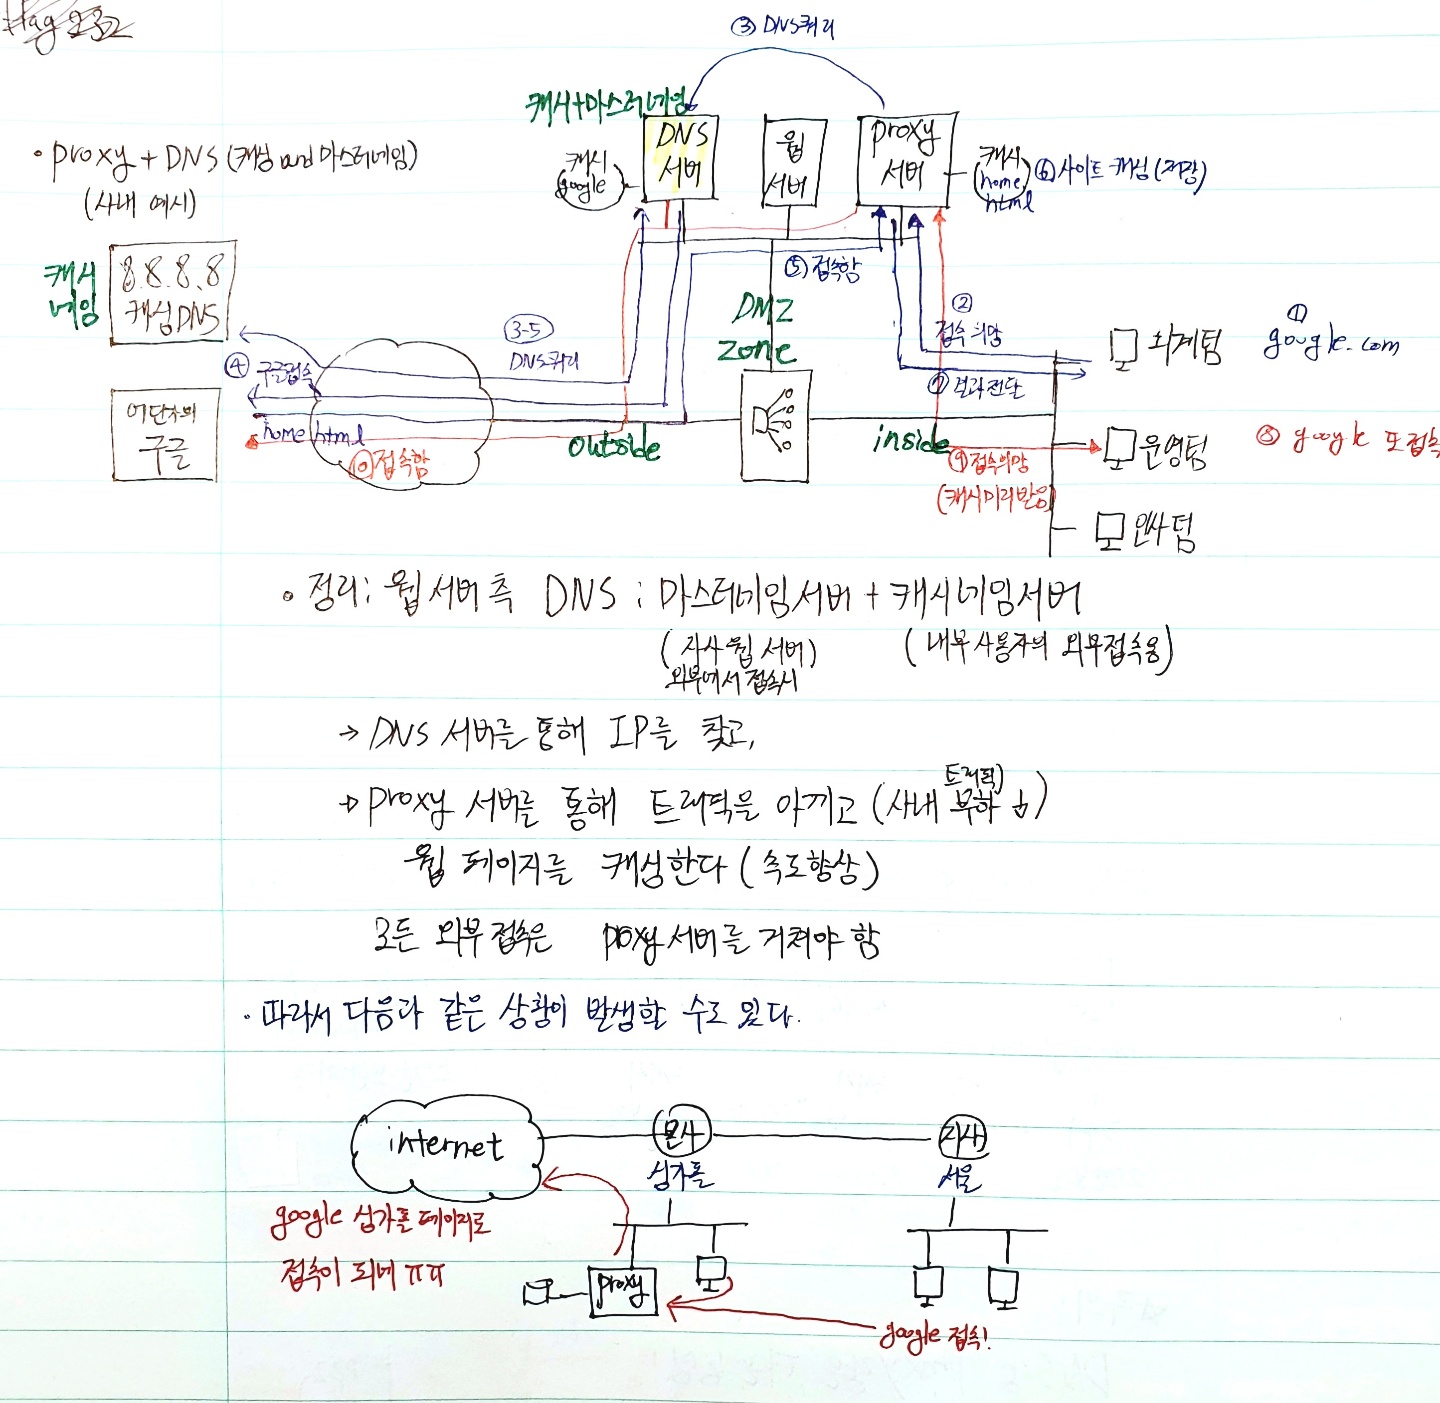 ③ DNS쿼리
캐시+마스터네임
• proxy + DNS (캐싱 and 마스터네임)
(사내 예시)
DNS
서버
웹
서버
proxy
서버
캐시
google
캐시
home.
html
⑥ 사이트 캐싱 (저장)
캐시
네임
8.8.8.8
캐싱DNS
⑤ 접속함
DMZ
zone
②
접속희망
①
google.com
회계팀
3-5
DNS쿼리
④ 구글접속
⑦ 결과전달
어딘가의
구글
home.html
⑩ 접속함
outside
inside
⑨ 접속희망
(캐시미리받음)
운영팀
⑧ google 또접속
인사팀
• 정리: 웹서버측 DNS : 마스터네임서버 + 캐시네임서버
(자사 웹 서버)
외부에서 접속시
(내부사용자의 외부접속용)
→ DNS 서버를 통해 IP를 찾고,
트래픽)
→ proxy 서버를 통해 트래픽을 아끼고 (사내 부하 ↓)
웹 페이지를 캐싱한다 (속도향상)
모든 외부 접속은 proxy 서버를 거쳐야 함
• 따라서 다음과 같은 상황이 발생할 수도 있다.
internet
본사
싱가폴
지사
서울
google 싱가폴 페이지로
접속이 되네 ㅠㅠ
proxy
google 접속!